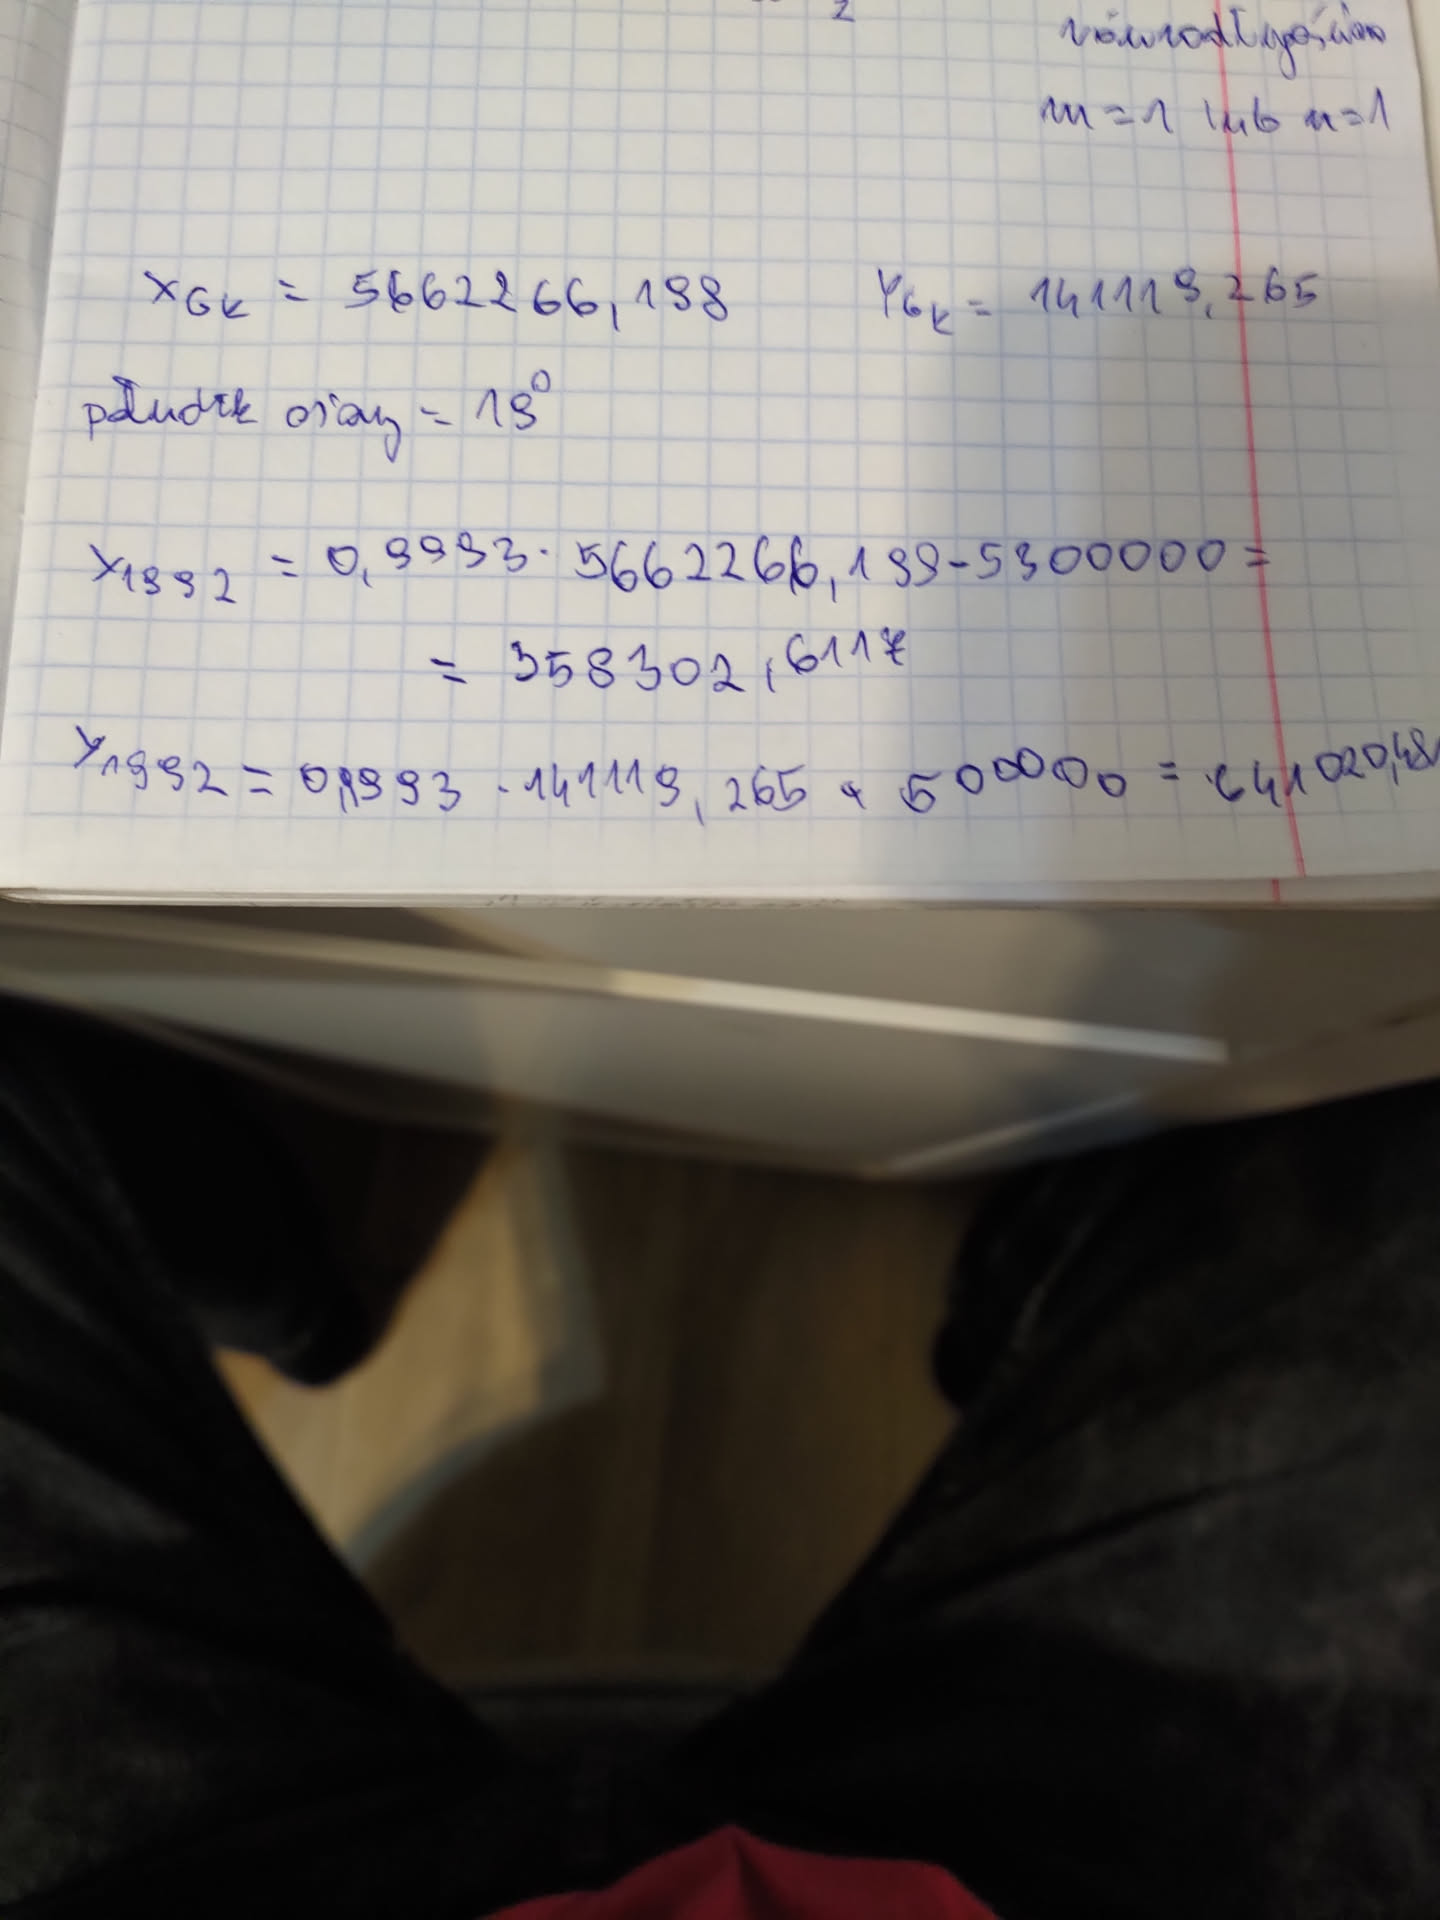 2
równodłgościow
m=1 lub n=1
X_GK = 5662266,199 Y_GK = 141119,265
płudzk osiowy = 19°
X_1992 = 0,9993 · 5662266,199 - 5300000 =
= 358302,6117
Y_1992 = 0,9993 · 141119,265 + 500000 = 641020,48